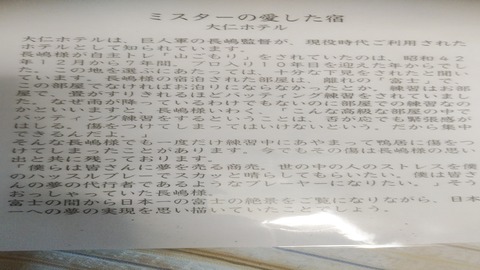 ミスターの愛した宿
大仁ホテル
大仁ホテルは、巨人軍の長嶋監督が、現役時代ご利用された
ホテルとして知られています。
長嶋様が自主トレ、「山ごもり」をされていたのは、昭和42
年12月から7年間。プロ入り10年目を迎えた年からでし
た。この地を選ぶにあたっては、十分な下見をされたと聞い
ています。長嶋様の宿泊された部屋は、離れの「富士」
この部屋でなければお泊りにならなかったとか。練習はお部
屋で、畳がすりきれるほどバッティング練習をされていまし
た。なぜ雨が降っているわけでもないのに部屋での練習なの
かといいますと、長嶋様いわく「こんな高級な部屋の中で
バッティング練習をするということは、否が応でも緊張感が
はしる。傷をつけてしまってはいけないという。だから集中
できるんだよ。」
そんな長嶋様でも一度だけ練習中にあやまって鴨居に傷をつ
けてしまったことがあります。今でもその傷は長嶋様の思い
出と共に残っております。
「僕らは皆さんに夢を売る商売。世の中の人のストレスを僕
のハッスルプレーでスカッと晴らしてもらいたい。僕は皆さ
んの夢の代行者であるようなプレーヤーになりたい。」そう
おっしゃっていた長嶋様。
富士の間から日本一の富士の絶景をご覧になりながら、日本
一への夢の実現を思い描いていたことでしょう。